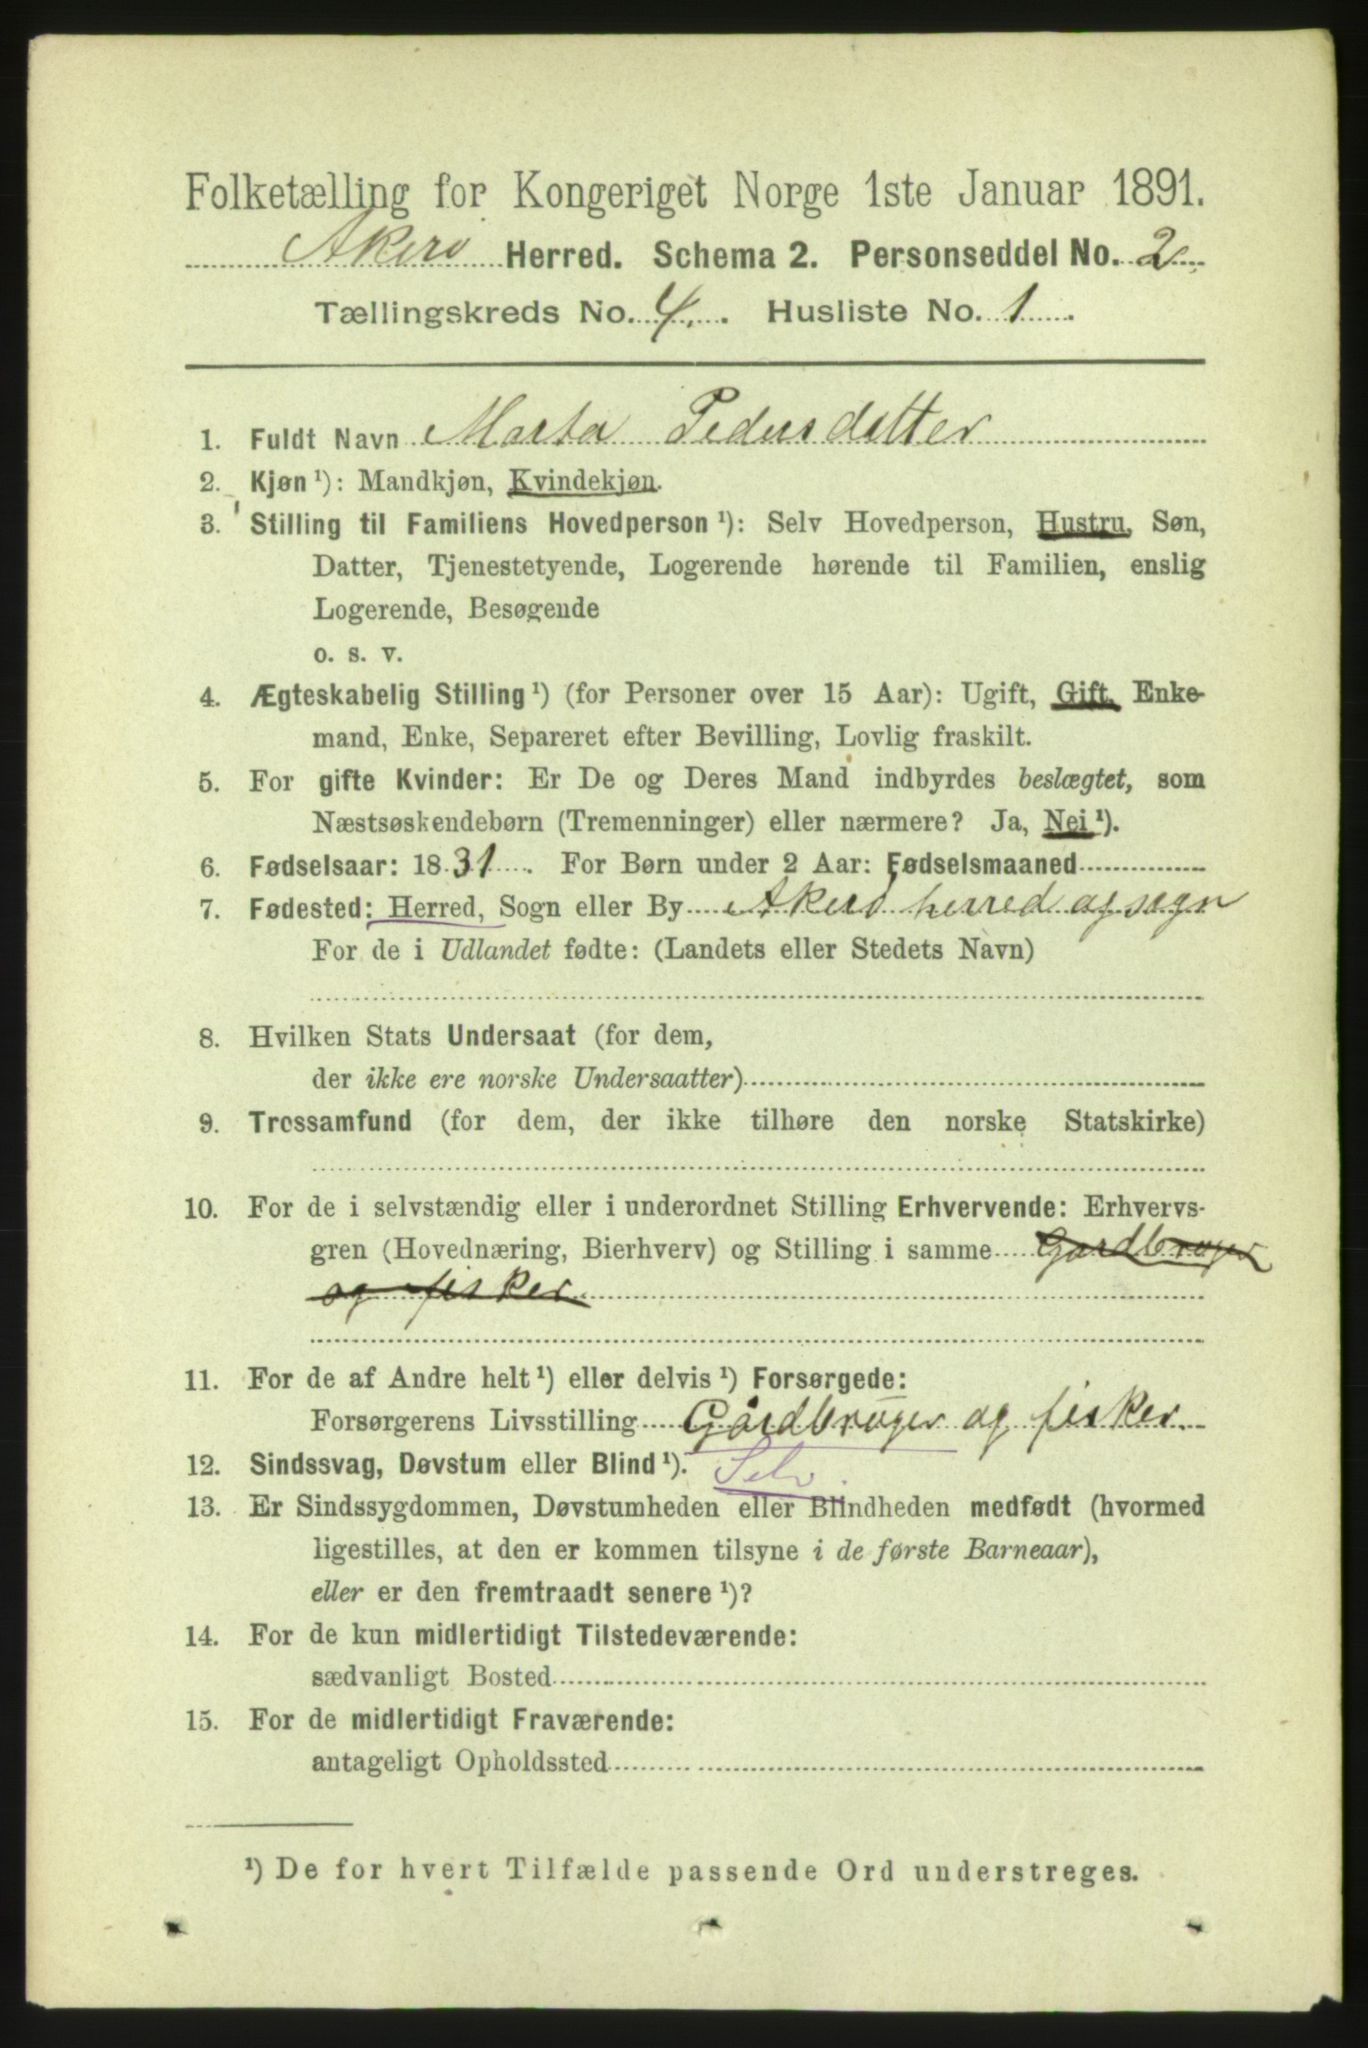 Folketælling for Kongeriget Norge 1ste Januar 1891.
Akerø Herred. Schema 2. Personseddel No. 2
Tællingskreds No. 4. Husliste No. 1.
1. Fuldt Navn Marta Pedersdatter
2. Kjøn ¹): Mandkjøn, Kvindekjøn.
3. Stilling til Familiens Hovedperson ¹): Selv Hovedperson, Hustru, Søn,
Datter, Tjenestetyende, Logerende hørende til Familien, enslig
Logerende, Besøgende
o. s. v.
4. Ægteskabelig Stilling ¹) (for Personer over 15 Aar): Ugift, Gift, Enke-
mand, Enke, Separeret efter Bevilling, Lovlig fraskilt.
5. For gifte Kvinder: Er De og Deres Mand indbyrdes beslægtet, som
Næstsøskendebørn (Tremenninger) eller nærmere? Ja, Nei ¹).
6. Fødselsaar: 1831. For Børn under 2 Aar: Fødselsmaaned
7. Fødested: Herred, Sogn eller By Akerø herred og sogn
For de i Udlandet fødte: (Landets eller Stedets Navn)
8. Hvilken Stats Undersaat (for dem,
der ikke ere norske Undersaatter)
9. Trossamfund (for dem, der ikke tilhøre den norske Statskirke)
10. For de i selvstændig eller i underordnet Stilling Erhvervende: Erhvervs-
gren (Hovednæring, Bierhverv) og Stilling i samme Gårdbruger
og fisker
11. For de af Andre helt ¹) eller delvis ¹) Forsørgede:
Forsørgerens Livsstilling Gårdbruger og fisker.
12. Sindssvag, Døvstum eller Blind ¹). Selv.
13. Er Sindssygdommen, Døvstumheden eller Blindheden medfødt (hvormed
ligestilles, at den er kommen tilsyne i de første Barneaar),
eller er den fremtraadt senere ¹)?
14. For de kun midlertidigt Tilstedeværende:
sædvanligt Bosted
15. For de midlertidigt Fraværende:
antageligt Opholdssted
¹) De for hvert Tilfælde passende Ord understreges.